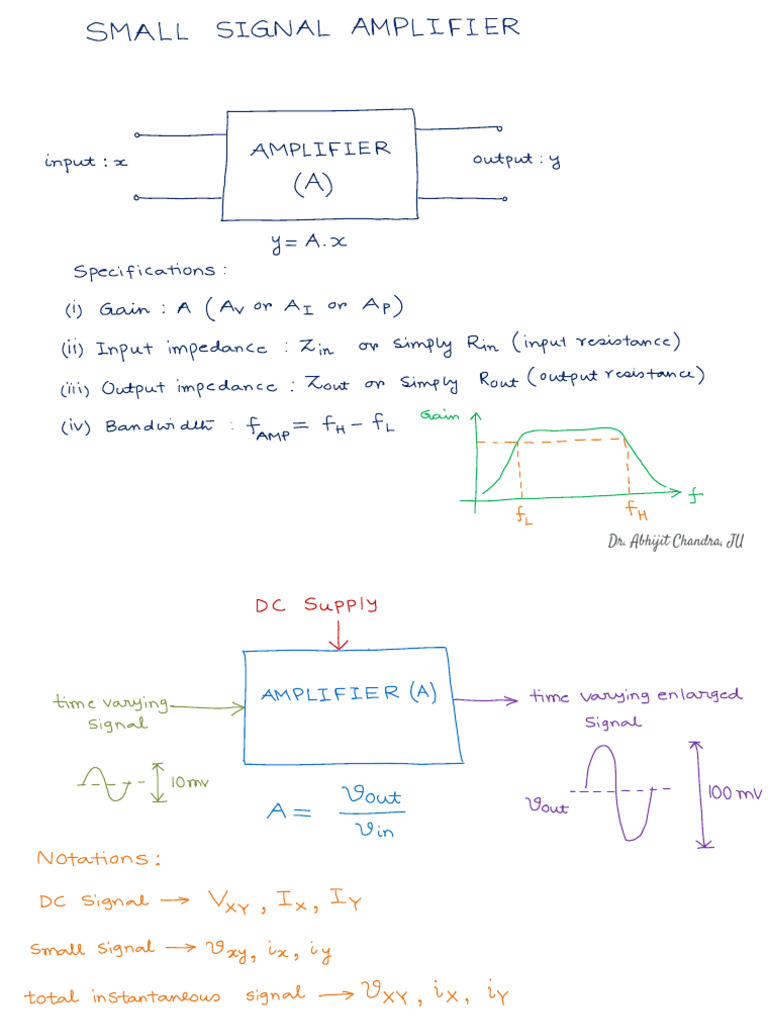 SMALL SIGNAL AMPLIFIER
input : x
AMPLIFIER
(A)
output : y
y = A.x
Specifications :
(i) Gain : A (A_V or A_I or A_P)
(ii) Input impedance : Z_in or simply R_in (input resistance)
(iii) Output impedance : Z_out or simply R_out (output resistance)
(iv) Bandwidth : f_AMP = f_H - f_L
Gain
f
f_L
f_H
Dr. Abhijit Chandra, JU
DC Supply
time varying
signal
AMPLIFIER (A)
time varying enlarged
signal
10 mv
A = v_out / v_in
v_out
100 mv
Notations :
DC Signal → V_XY , I_X , I_Y
small signal → v_xy, i_x, i_y
total instantaneous signal → v_XY , i_X , i_Y